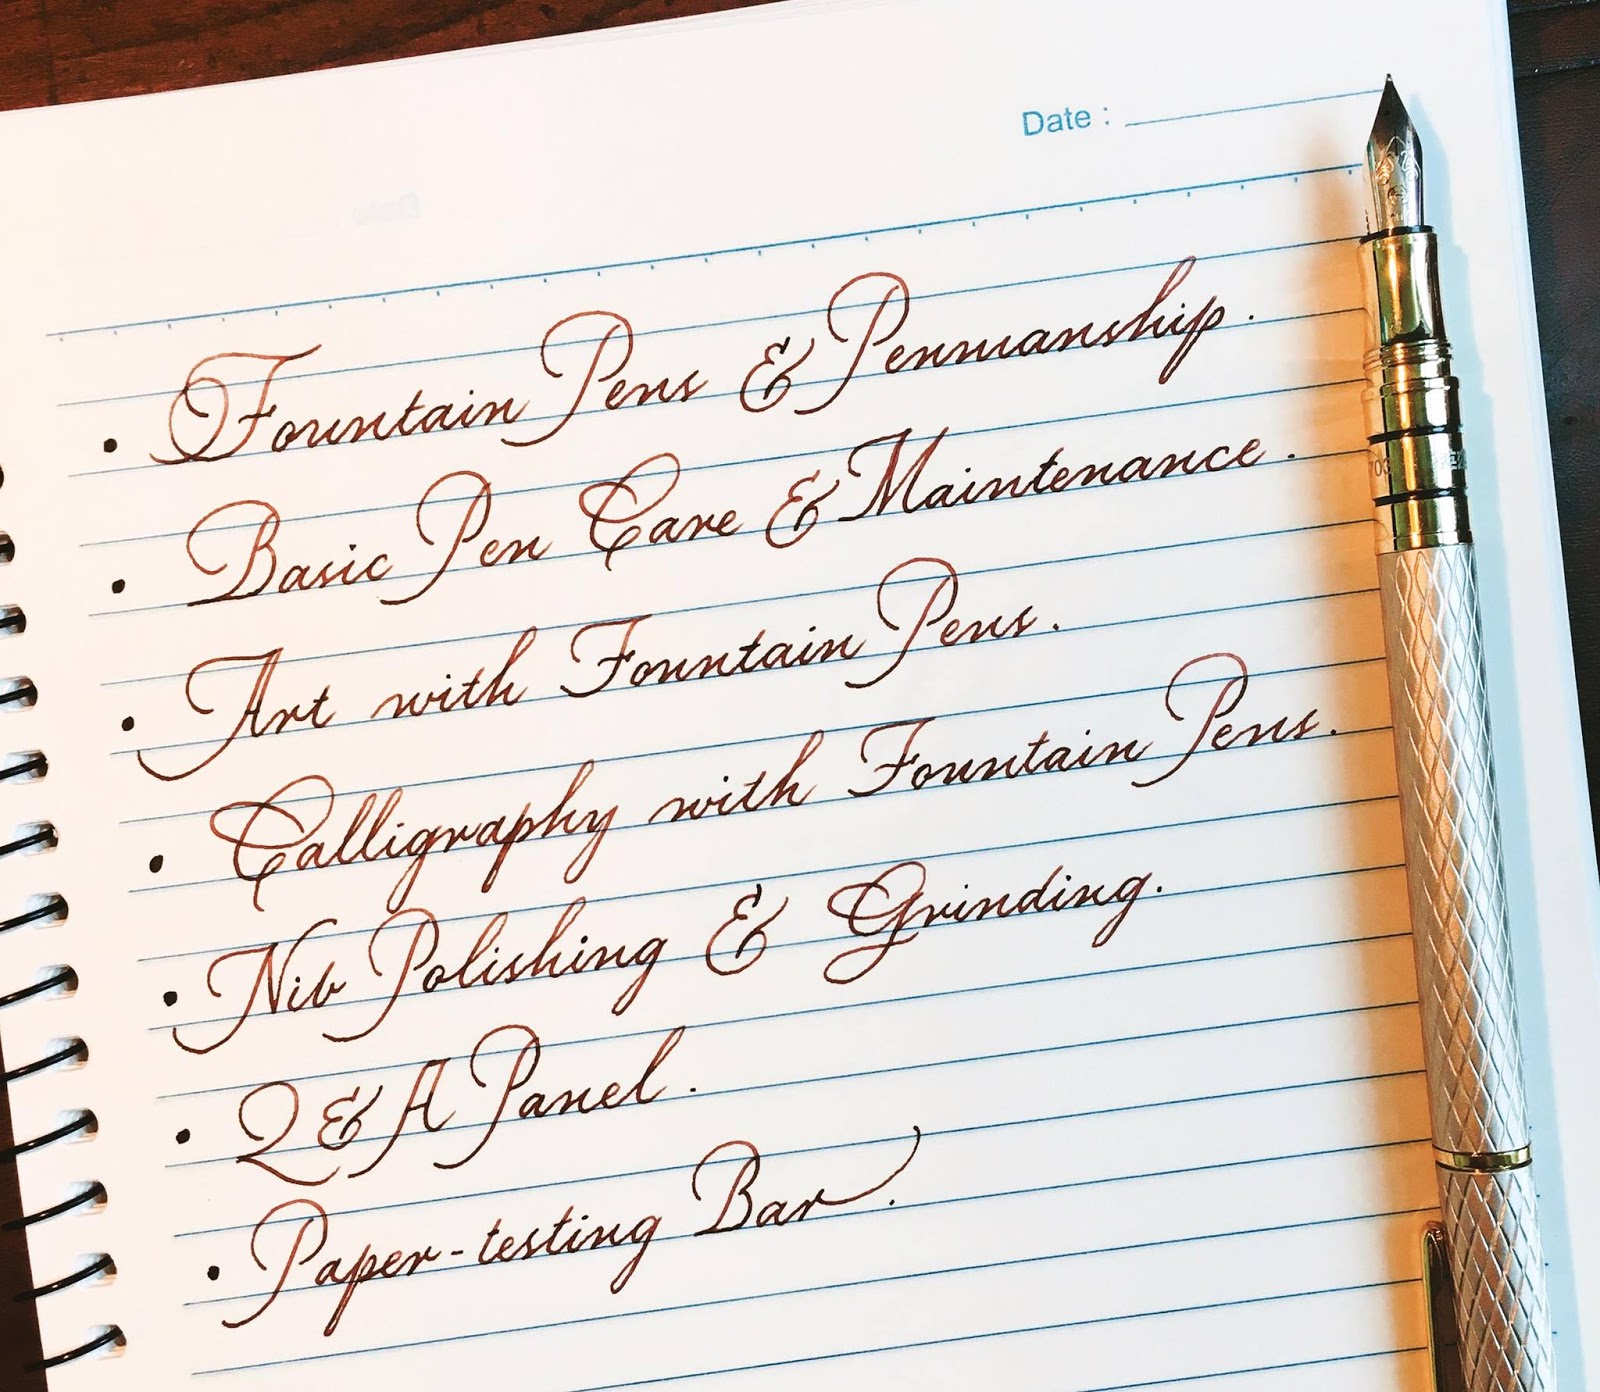 Date :
• Fountain Pens & Penmanship.
• Basic Pen Care & Maintenance.
• Art with Fountain Pens.
• Calligraphy with Fountain Pens.
• Nib Polishing & Grinding.
• Q & A Panel.
• Paper-testing Bar.